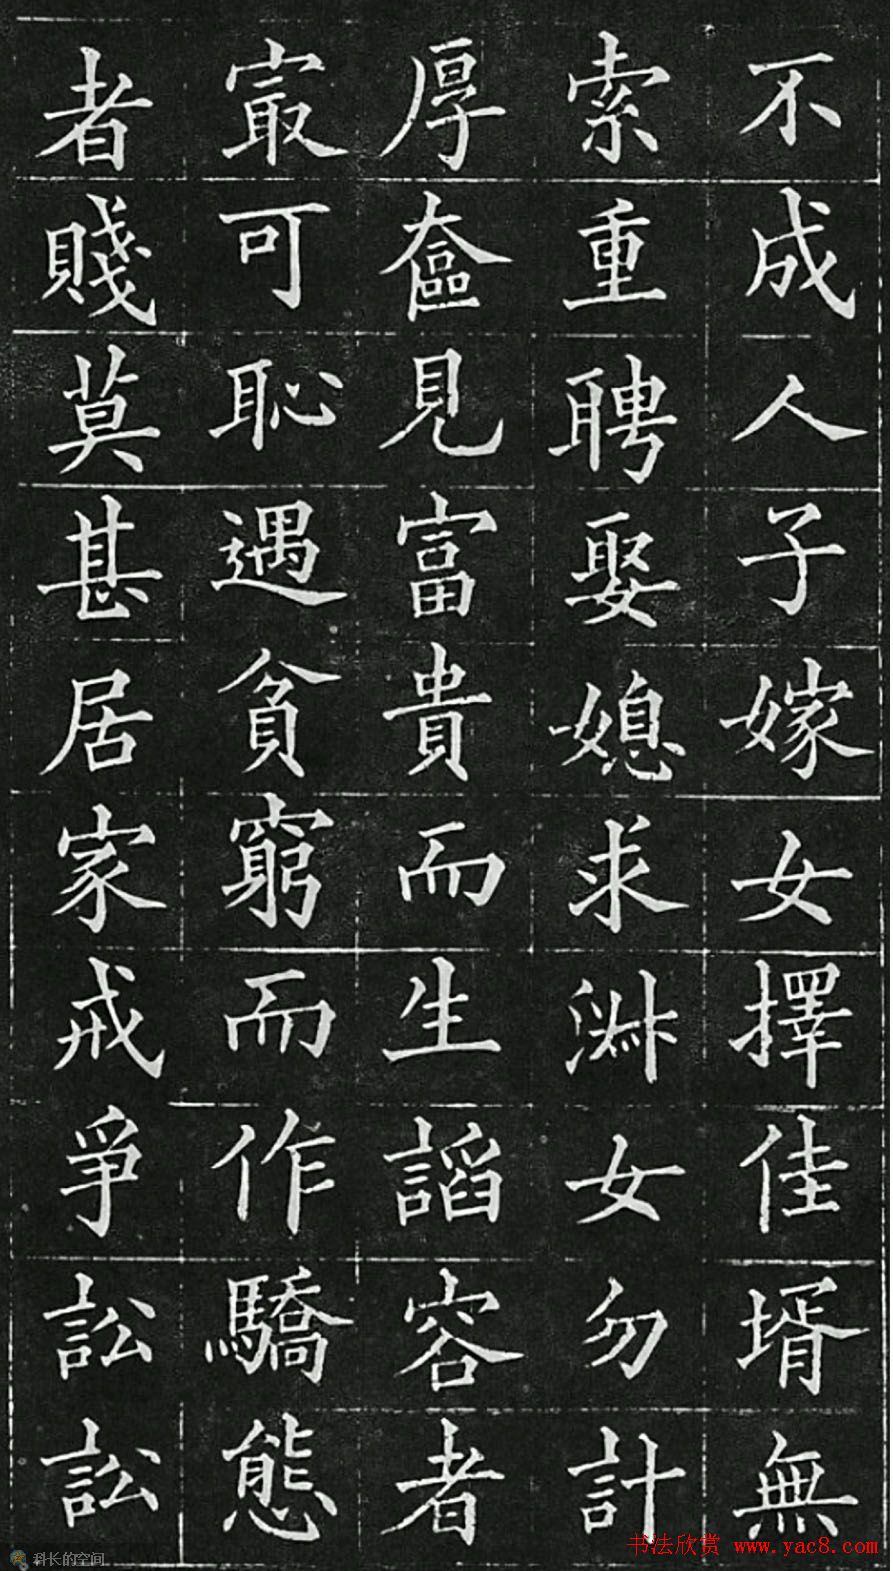 不成人子嫁女擇佳壻無
索重聘娶媳求淑女勿計
厚奩見富貴而生謟容者
冣可恥遇貧窮而作驕態
者賤莫甚居家戒爭訟訟
科长的空间
书法欣赏 www.yac8.com